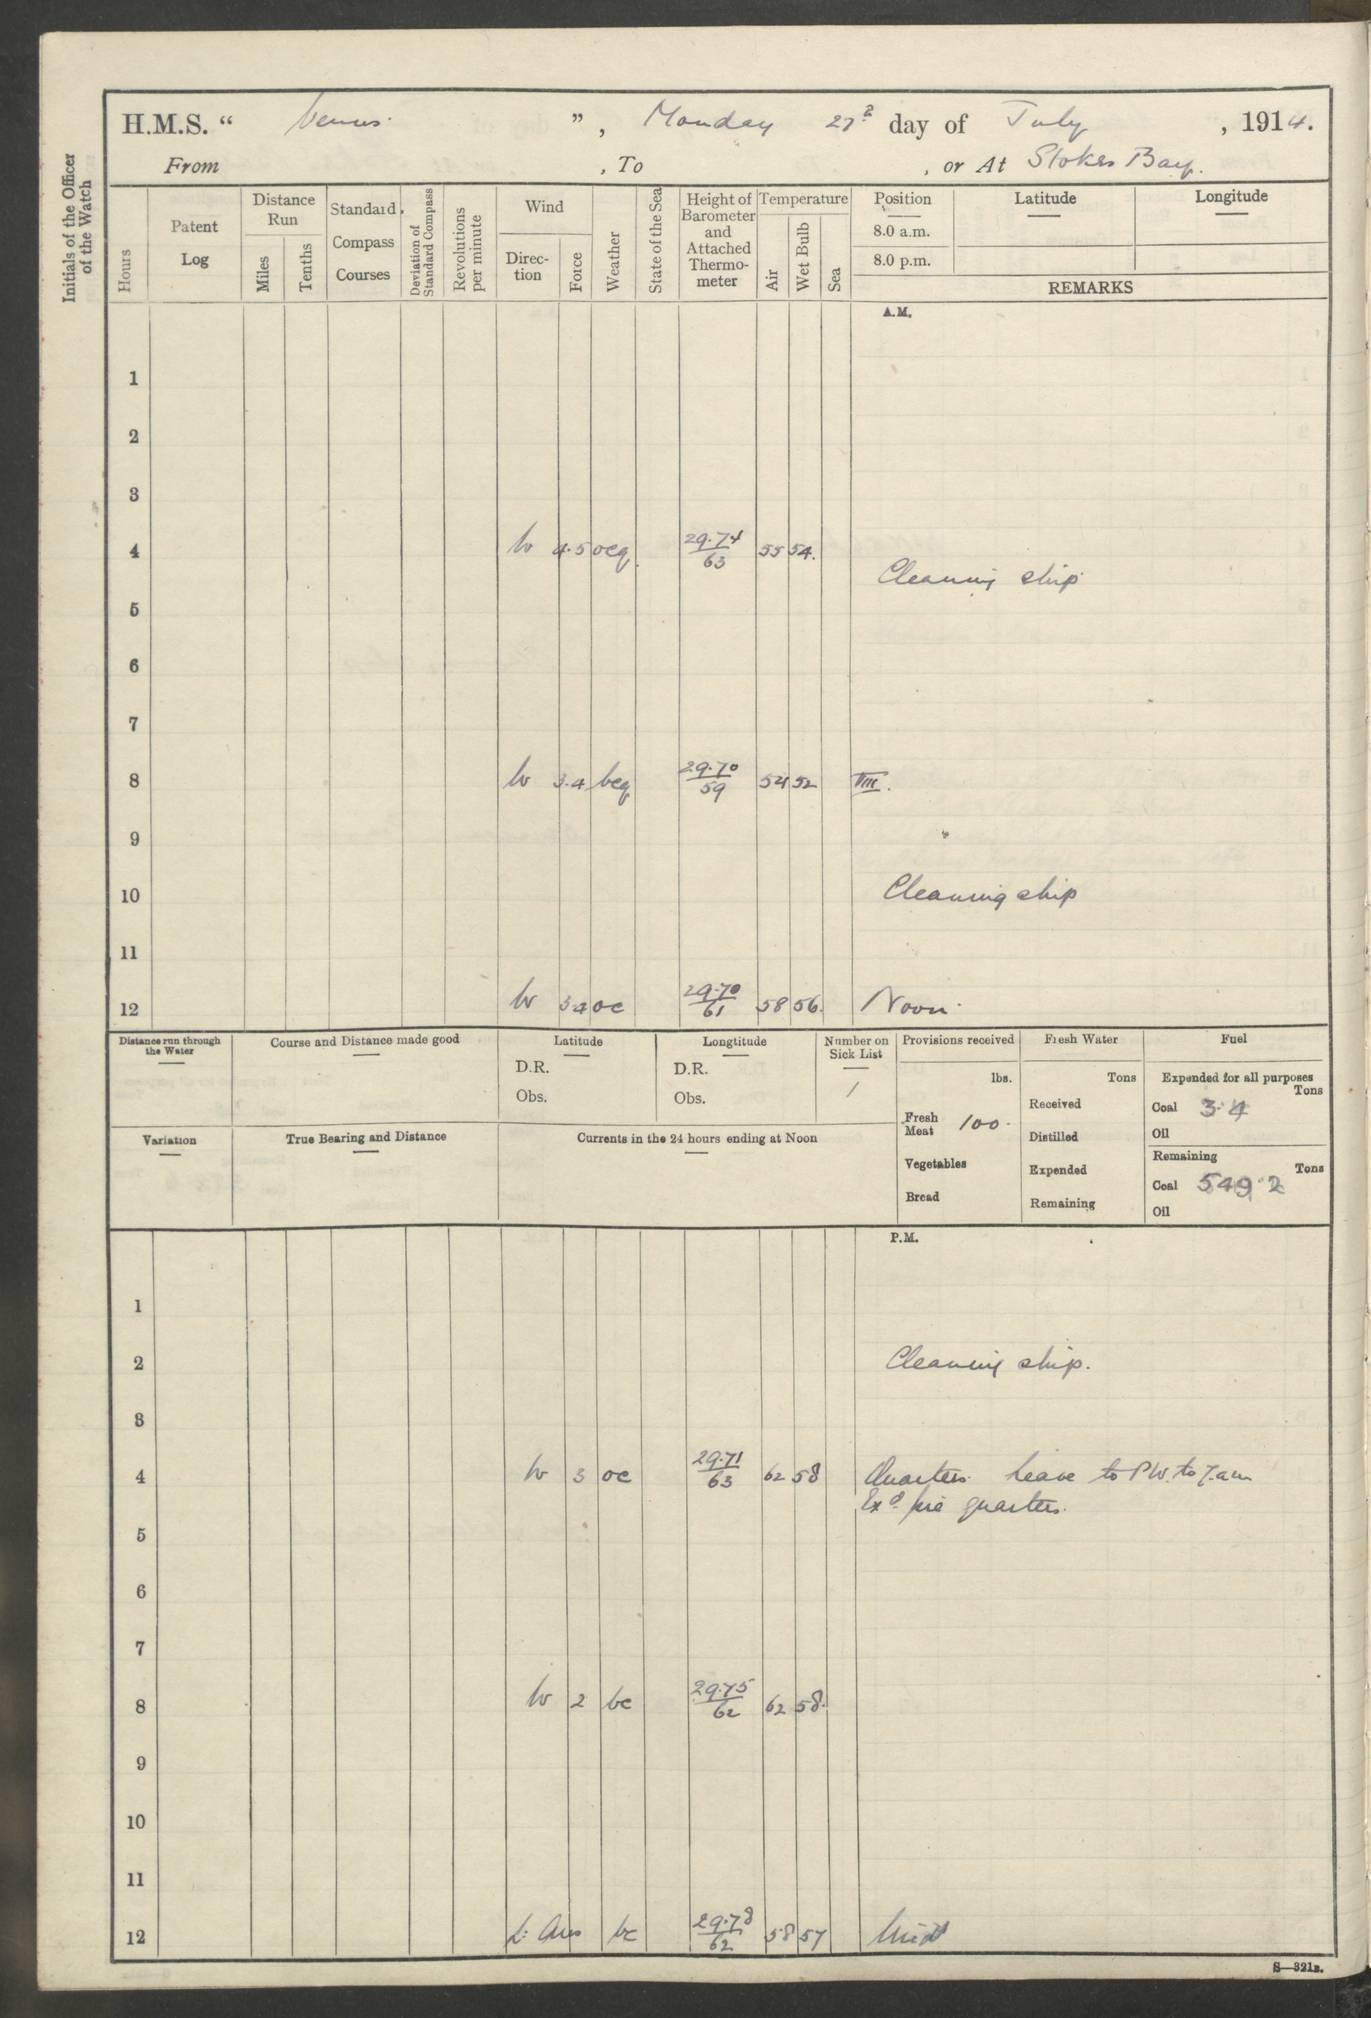 H.M.S. “ Venus ” , Monday 27th day of July , 1914.
From , To , or At Stokes Bay.
Initials of the Officer of the Watch
Hours
Patent Log
Distance Run
Miles
Tenths
Standard Compass Courses
Deviation of Standard Compass
Revolutions per minute
Wind
Direction
Force
Weather
State of the Sea
Height of Barometer and Attached Thermometer
Temperature
Air
Wet Bulb
Sea
Position
8.0 a.m.
8.0 p.m.
Latitude
Longitude
REMARKS
A.M.
1
2
3
4 W 4.5 ocq 29.74/63 55 54.
Cleaning ship
5
6
7
8 W 3.4 bcq 29.70/59 54 52 VIII.
9
10 Cleaning ship
11
12 W 3.4 oc 29.70/61 58 56. Noon.
Distance run through the Water
Course and Distance made good
Latitude
D.R.
Obs.
Longtitude
D.R.
Obs.
Number on Sick List
1
Provisions received
lbs.
Fresh Meat 100.
Vegetables
Bread
Fresh Water
Tons
Received
Distilled
Expended
Remaining
Fuel
Expended for all purposes
Tons
Coal 3.4
Oil
Remaining
Tons
Coal 549.2
Oil
Variation
True Bearing and Distance
Currents in the 24 hours ending at Noon
P.M.
1
2 Cleaning ship.
3
4 W 3 oc 29.71/63 62 58 Quarters. Leave to P.W. to 7.am
Exd fire quarters.
5
6
7
8 W 2 bc 29.75/62 62 58.
9
10
11
12 L. Airs bc 29.78/62 58 57 Midt
S—321B.